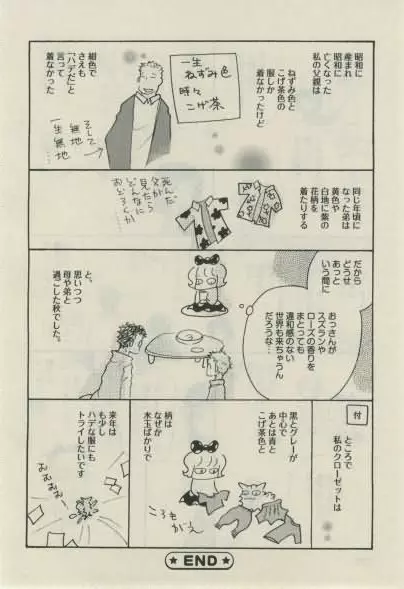 昭和に
産まれ
昭和に
亡くなった
私の父親は
ねずみ色と
こげ茶色の
服しか
着なかったけど
一生
ねずみ色
時々
こげ茶
紺色で
さえも
「ハデだ」と
言って
着なかった
そして
無地
一生無地…
同じ年頃に
なった弟は
黄色や
白地に紫の
花柄を
着たりする
死んだ
父が
見たら
どんなに
おどろくか…
だから
どうせ
あっと
いう間に
おっさんが
スズランや
ローズの香りを
まとっても
違和感のない
世界も来ちゃうん
だろうな…
と、
思いつつ
母や弟と
過ごした秋でした。
付
ところで
私のクローゼットは
黒とグレーが
中心で
あとは青と
こげ茶色と
柄は
なぜか
水玉ばかりで
ころも
がえ
来年は
も少し
ハデな服にも
トライしたいです
むむむむ…
★ END ★